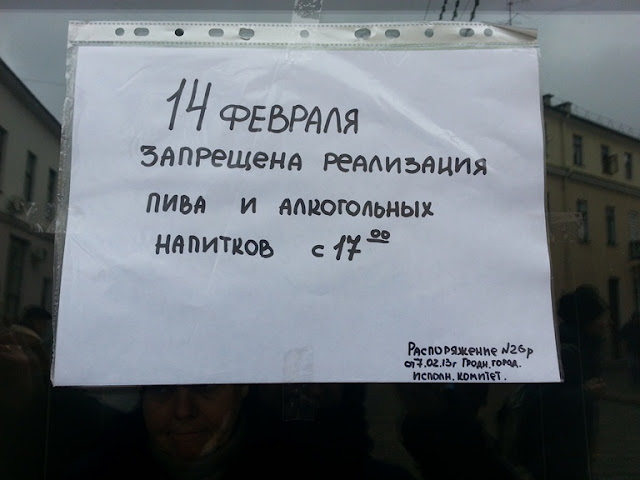 14 ФЕВРАЛЯ
ЗАПРЕЩЕНА РЕАЛИЗАЦИЯ
ПИВА И АЛКОГОЛЬНЫХ
НАПИТКОВ С 17⁰⁰
РАСПОРЯЖЕНИЕ N26р
от 7.02.13г ГРОДН. ГОРОД.
ИСПОЛН. КОМИТЕТ.